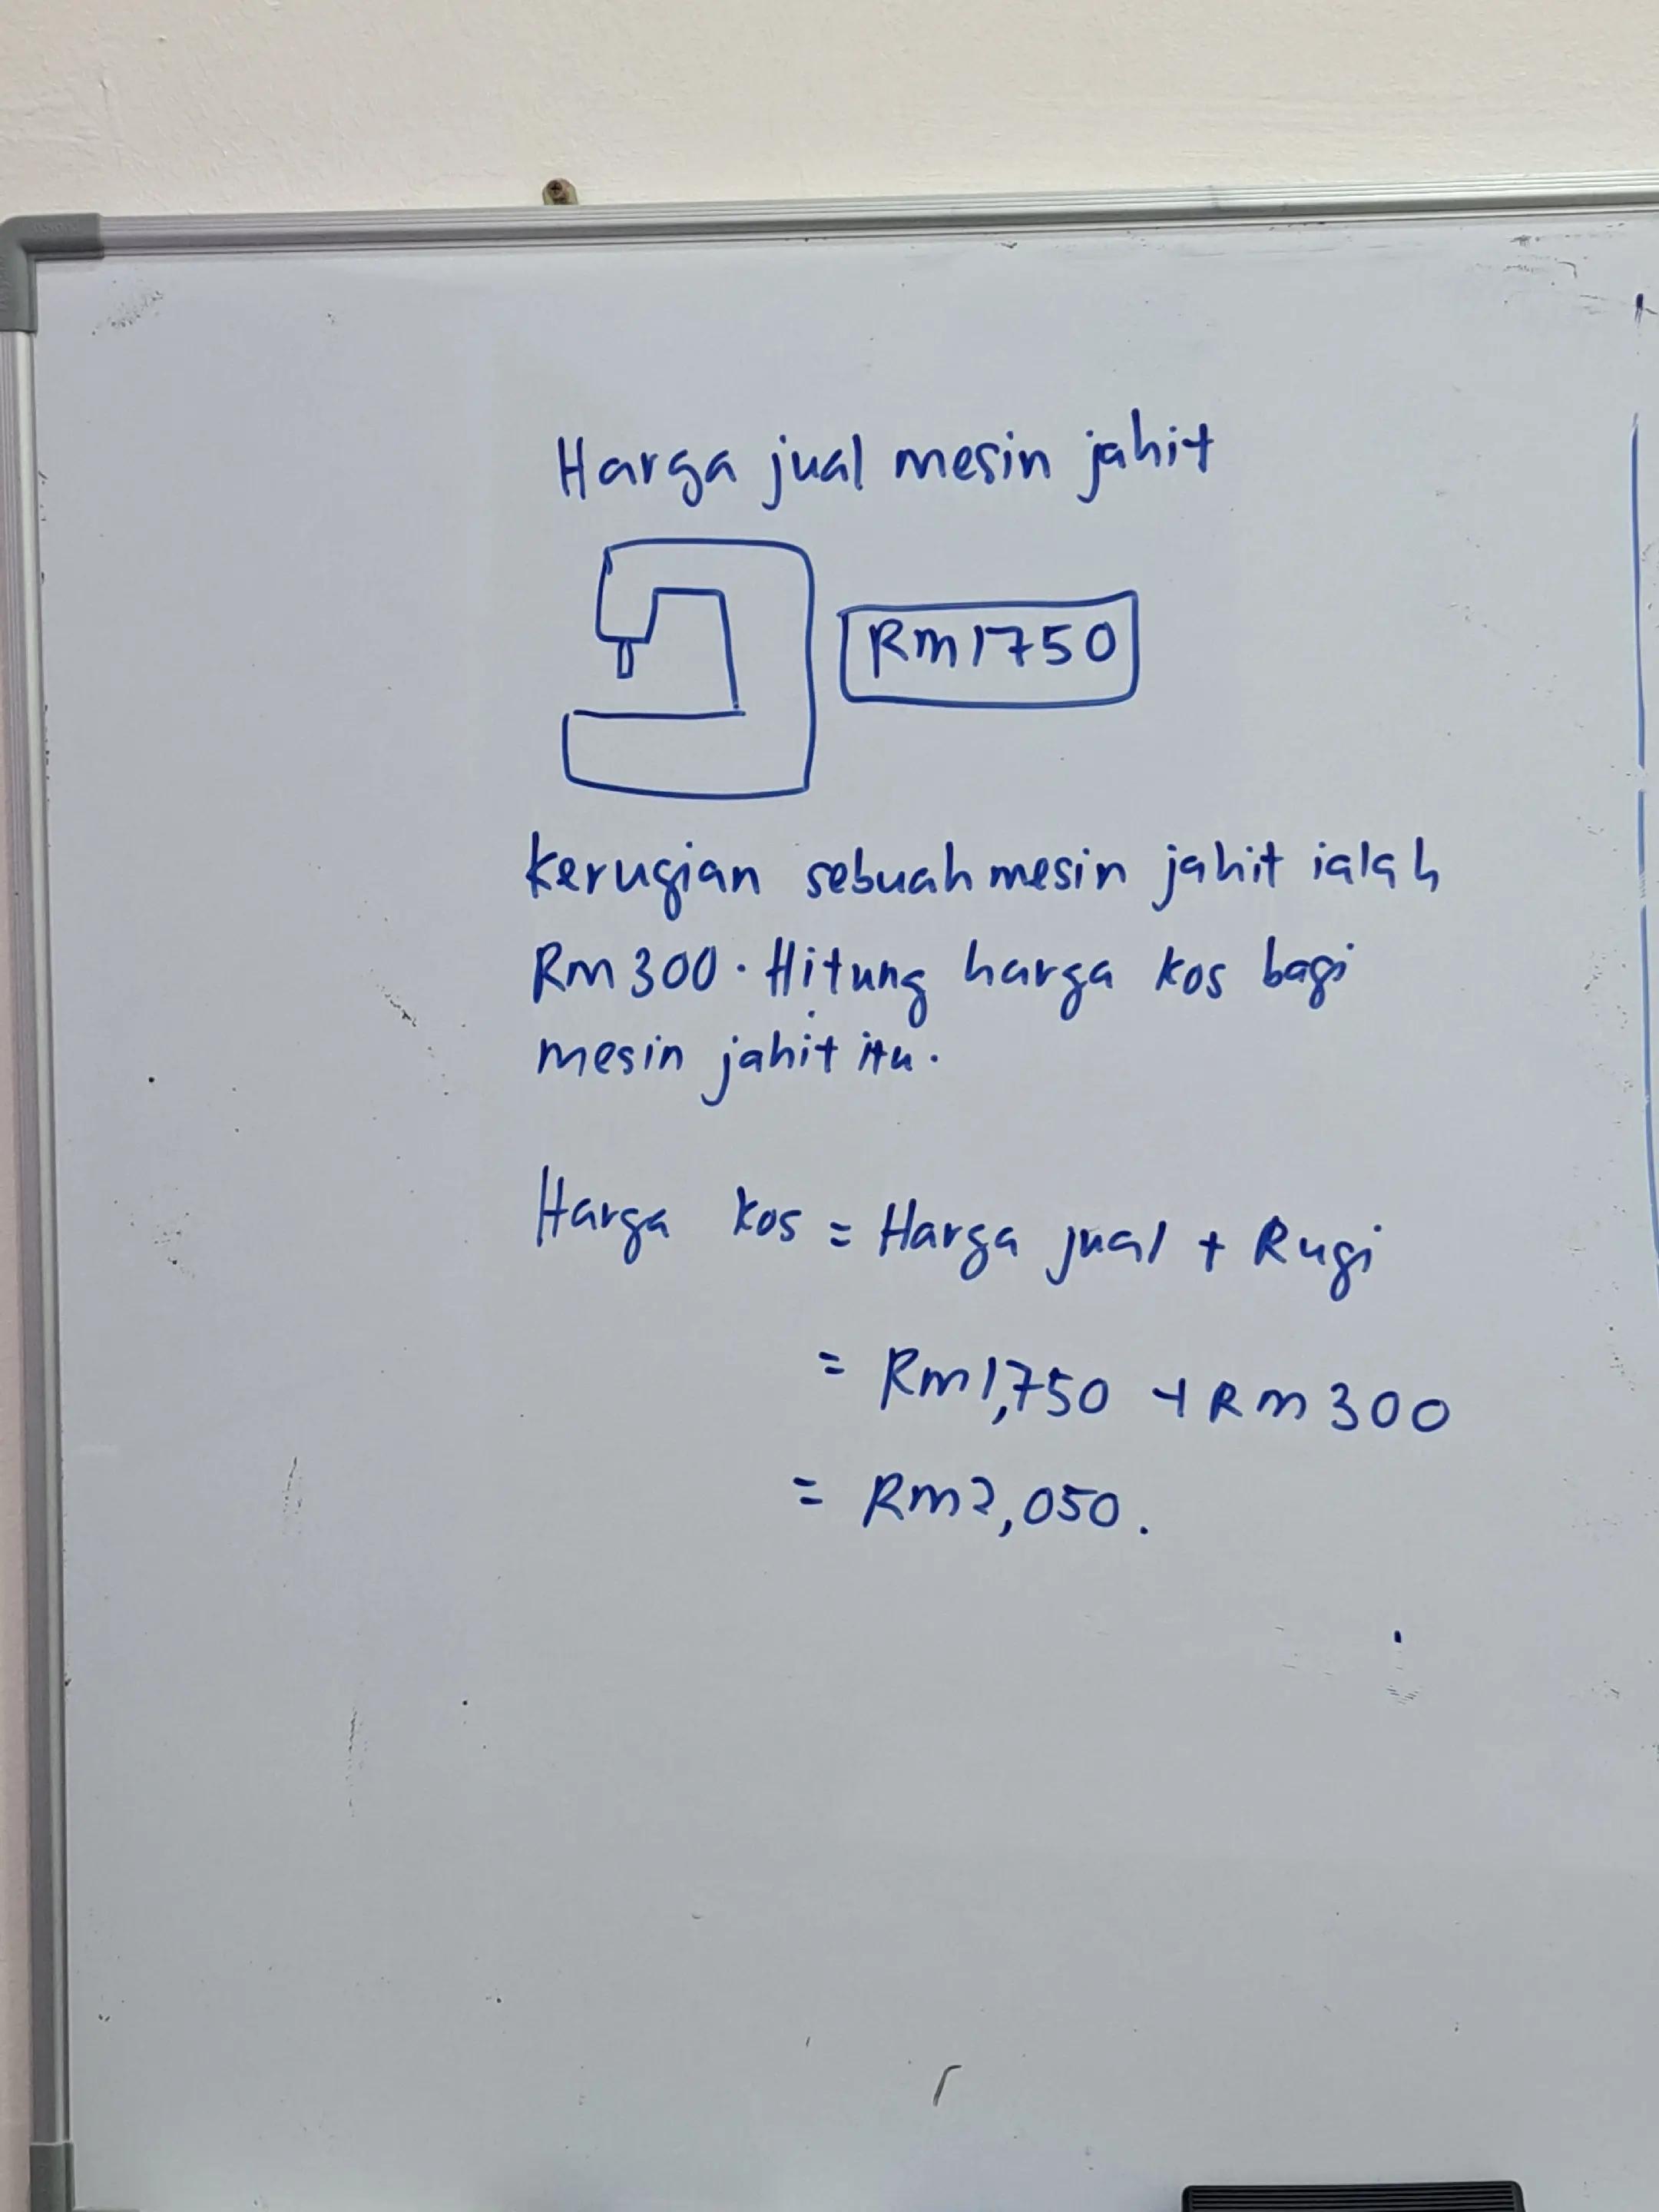 Harga jual mesin jahit
RM1750
Kerugian sebuah mesin jahit ialah
RM300. Hitung harga kos bagi
mesin jahit itu.
Harga kos = Harga jual + Rugi
= RM1,750 + RM300
= RM2,050.